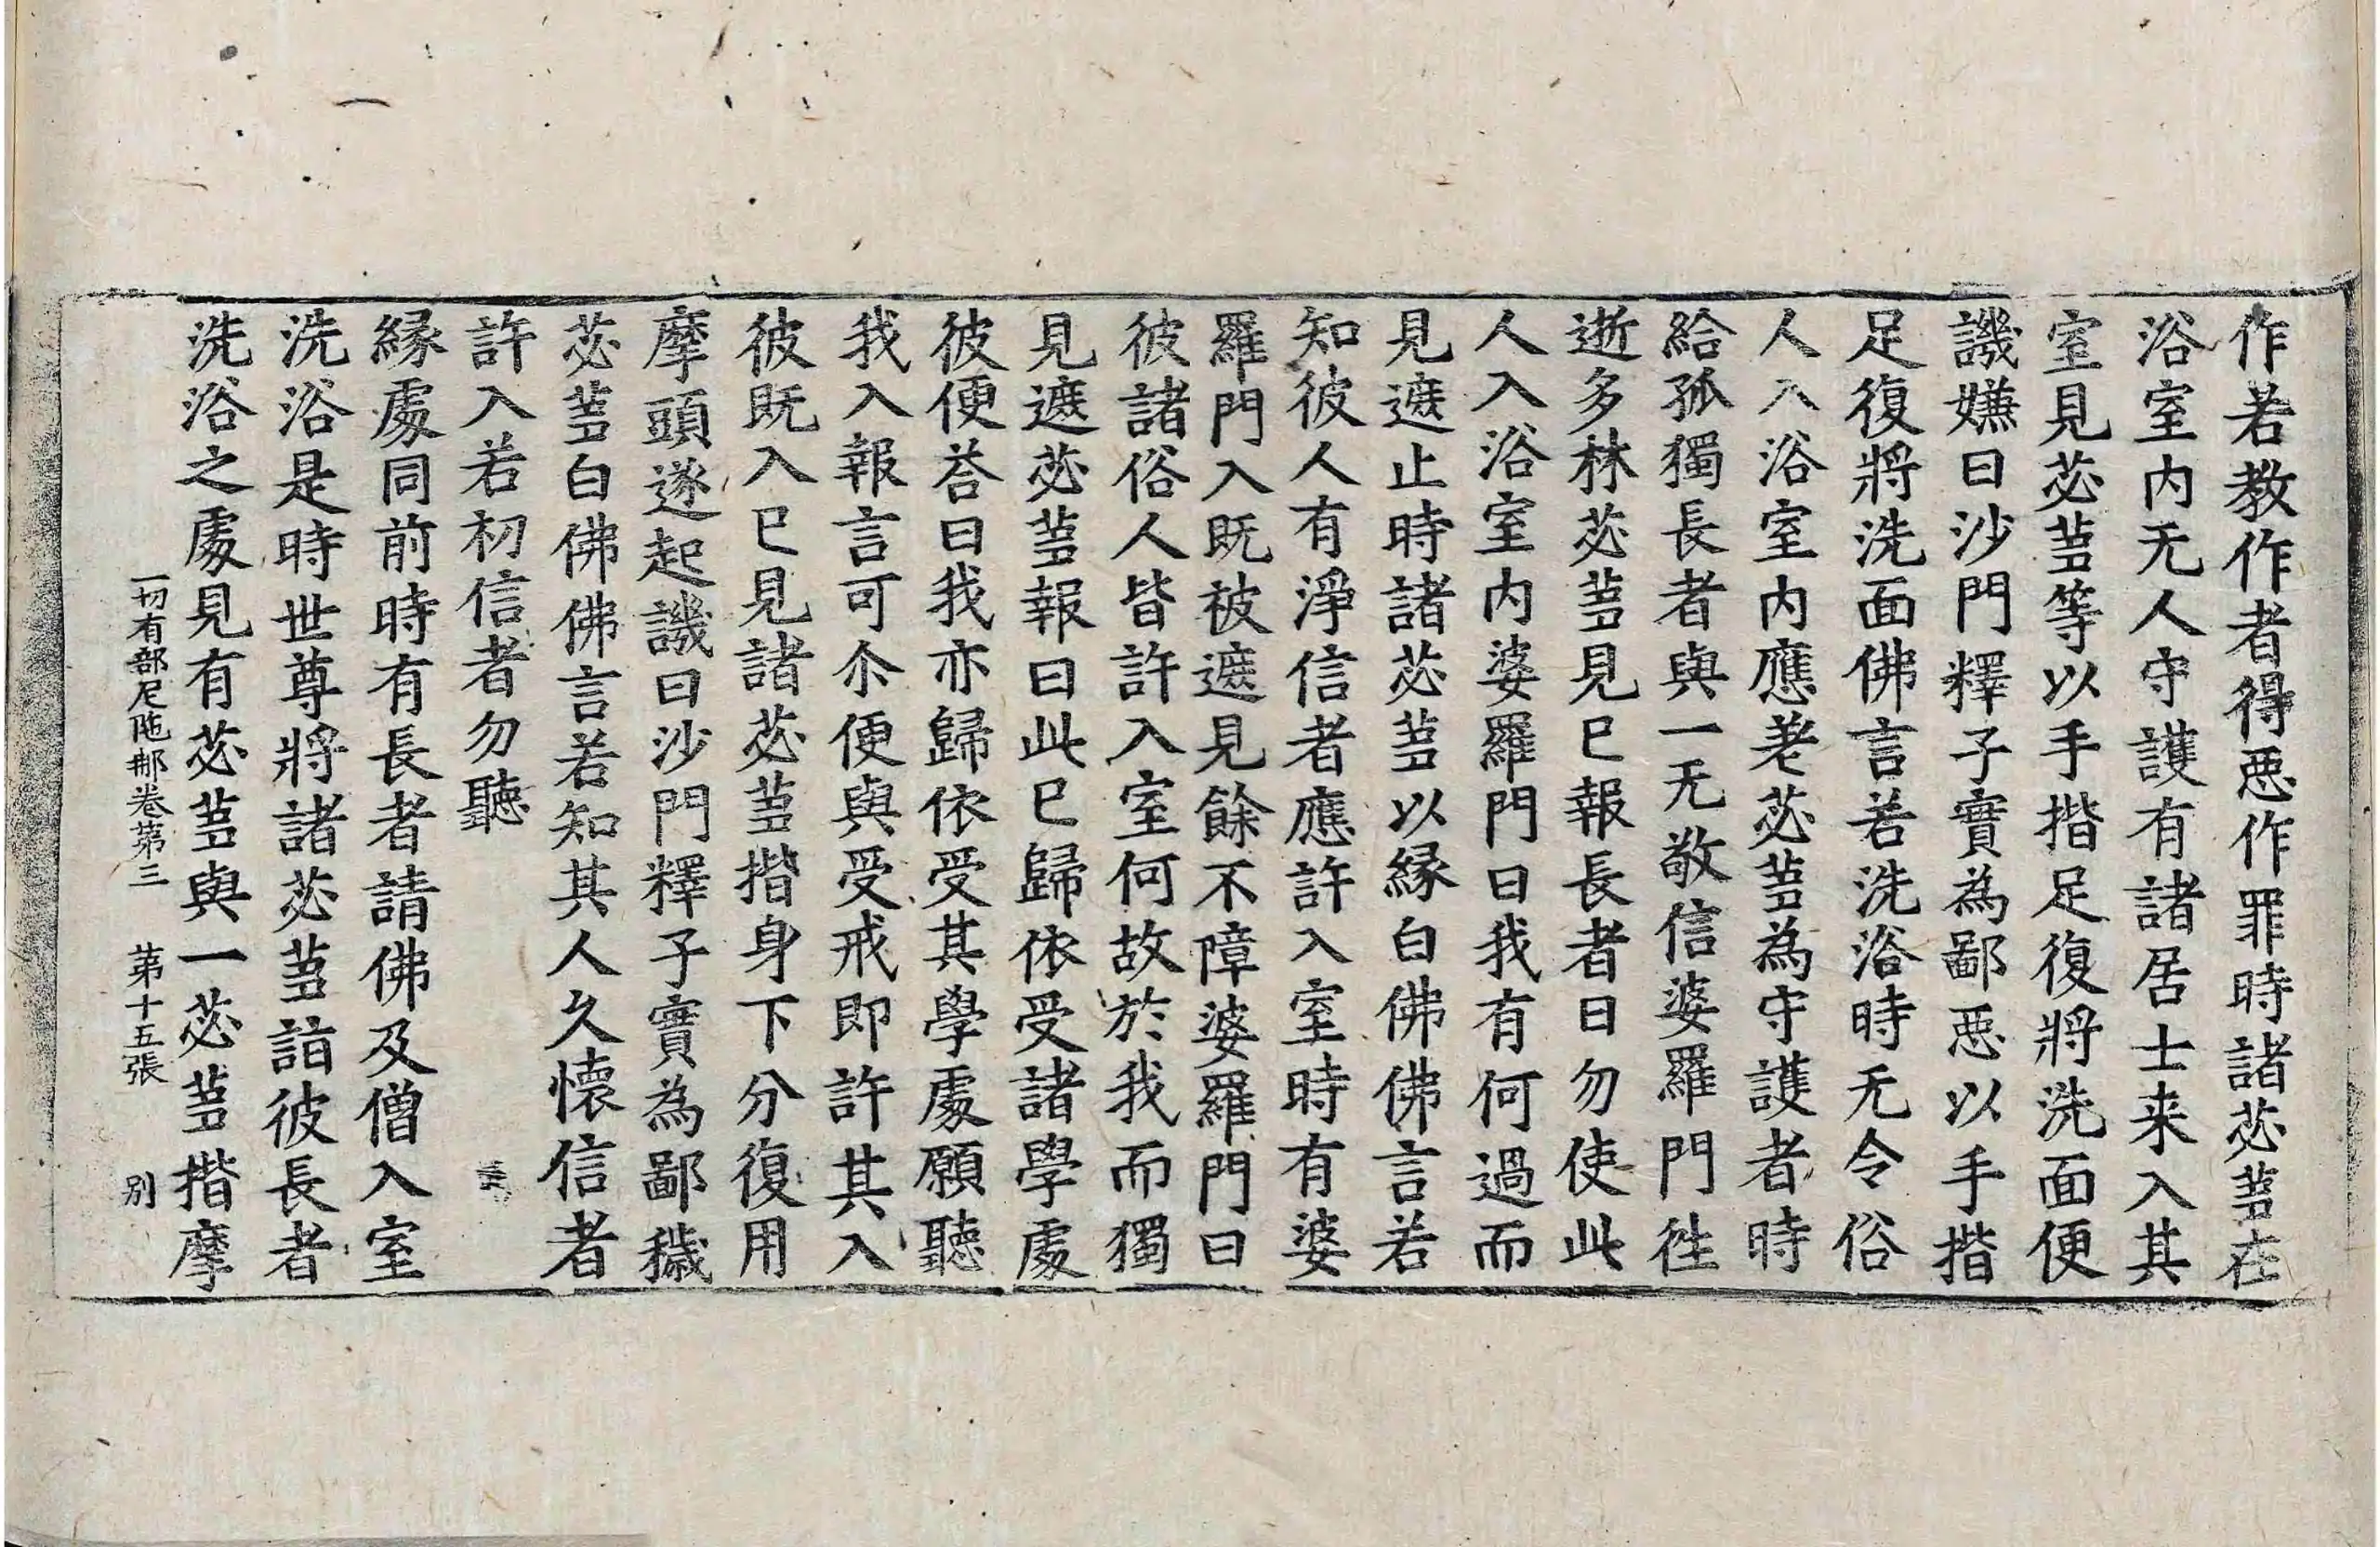 作若教作者得惡作罪時諸苾蒭在
浴室内无人守護有諸居士来入其
室見苾蒭等以手揩足復將洗面便
譏嫌曰沙門釋子實為鄙惡以手揩
足復將洗面佛言若洗浴時无令俗
人入浴室内應差苾蒭為守護者時
給孤獨長者與一无敬信婆羅門徃
逝多林苾蒭見已報長者曰勿使此
人入浴室内婆羅門曰我有何過而
見遮止時諸苾蒭以縁白佛佛言若
知彼人有淨信者應許入室時有婆
羅門入既被遮見餘不障婆羅門曰
彼諸俗人皆許入室何故於我而獨
見遮苾蒭報曰此已歸依受諸學處
彼便荅曰我亦歸依受其學處願聽
我入報言可尒便與受戒即許其入
彼既入已見諸苾蒭揩身下分復用
摩頭遂起譏曰沙門釋子實為鄙穢
苾蒭白佛佛言若知其人久懷信者
許入若初信者勿聽
縁處同前時有長者請佛及僧入室
洗浴是時世尊將諸苾蒭詣彼長者
洗浴之處見有苾蒭與一苾蒭揩摩
一切有部尼陁那卷第三 第十五張 别